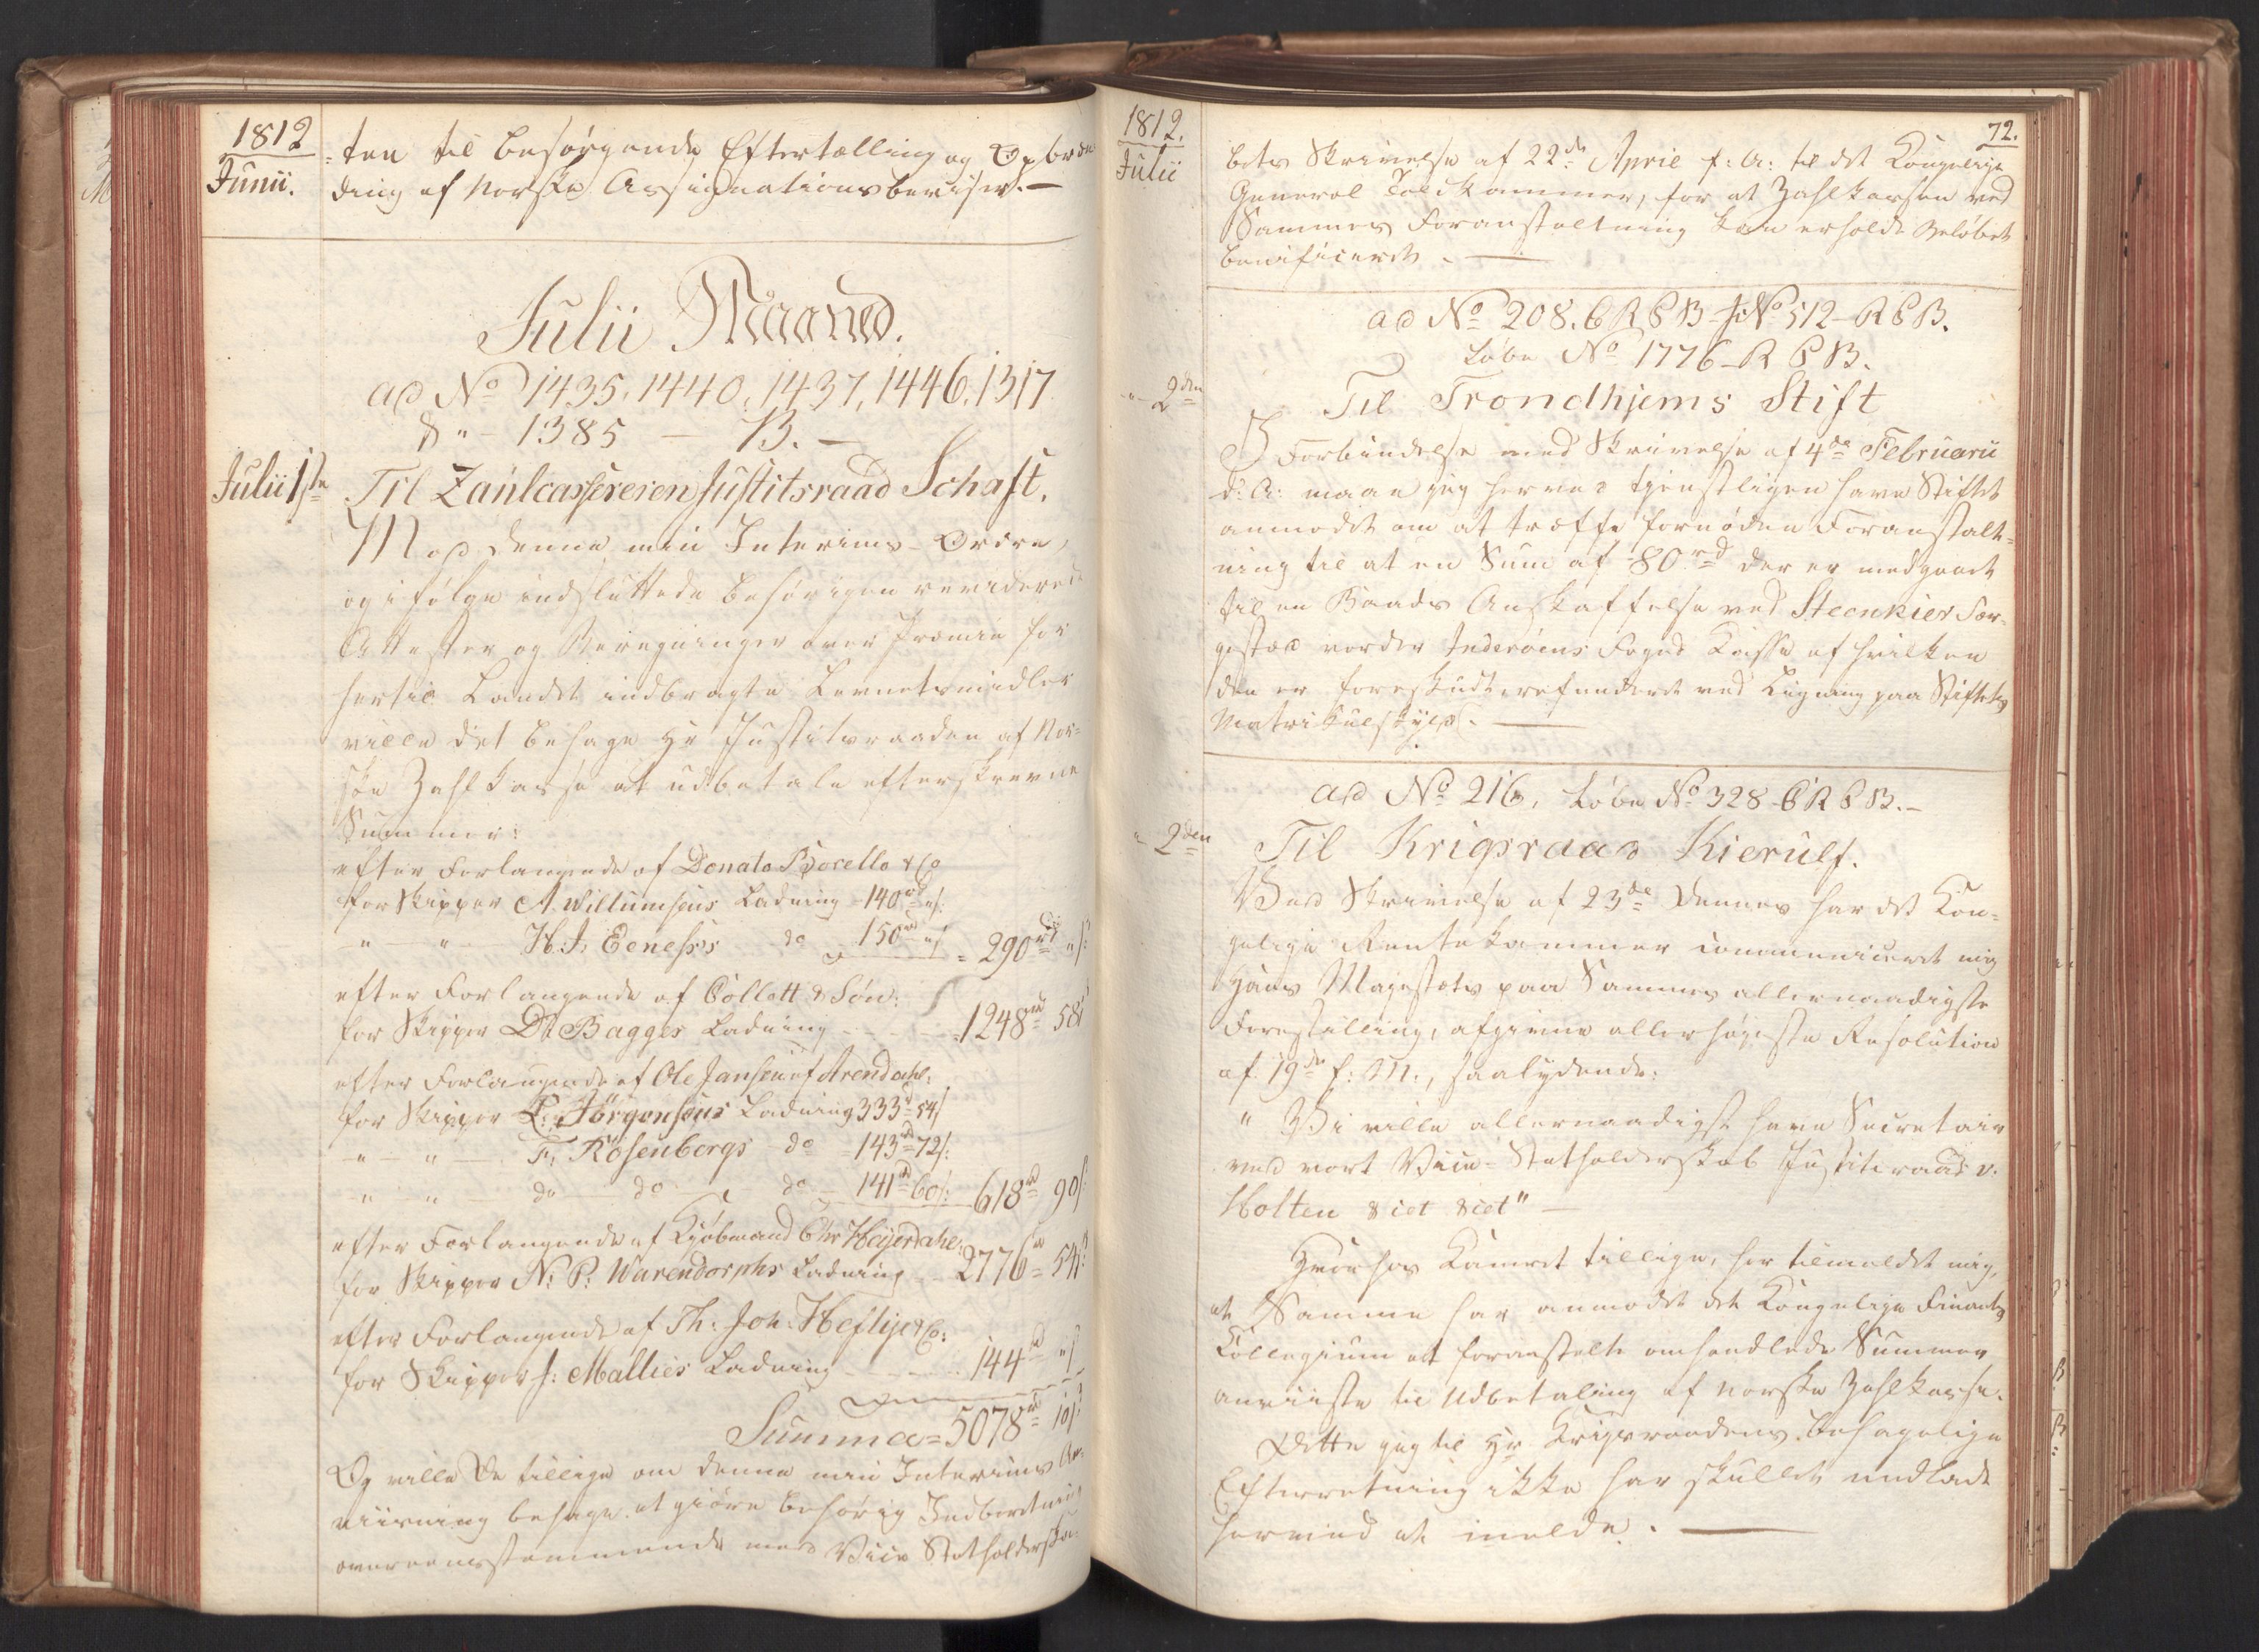 1812
Junii.
=ten til besørgende Eftertælling og Opbren
ding af Norske Assignationsbeviser.—
Julii Maaned.
ad No 1435. 1440. 1437. 1446. 1317
& " - 1385 — B. —
Julii 1ste
Til Zahlcassereren Justitsraad Schaft.
Mod denne min Interims-Ordre,
og ifølge indsluttede behørigen reviderede
Attester og Beregninger over Præmie for
hertil Landet indbragte Levnetsmidler
ville det behage Hr Justitsraaden af Nor=
ske Zahlkasse at udbetale efterskrevne
Summer:
efter Forlangende af Donato Borello & Co
for Skipper A. Willumsens Ladning - 140rd "s:
- " - " - H. J. Eeness's do 150rd "s = 290rd "s:
efter Forlangende af Collett & Søn:
for Skipper D. Bagges Ladning - - - 1248rd 58s
efter Forlangende af Ole Jansen af Arendahl:
for Skipper L. Jörgensens Ladning 333rd 54s
- " - " - F. Rosenbergs - do - 143rd 72s:
- " - " - do - do - do - 141rd 60s: 618rd 90s:
efter Forlangende af Kjøbmand Chr Heyerdahl:
for Skipper N: P: Warendorphs Ladning - - 2776rd 54s:
efter Forlangende af Th: Joh: Heftye & Co:
for Skipper J: Mallies Ladning - - - 144rd "s
Summa = 5078rd 10s:
Og ville De tillige om denne min Interims An-
viisning behage at giøre behørig Indberetning
overeensstemmende med Vice Statholderska-
1812.
Julii
72.
bets Skrivelse af 22de April f: A: til det Kongelige
General Toldkammer, for at Zahlkassen ved
Sammes Foranstaltning kan erholde Beløbet
bonificeret. —
ad No 208. C R P B - J No 512 - R P B.
Løbe No 1776 - R P B.
" - 2den
Til Trondhjems Stift
I Forbindelse med Skrivelse af 4de Februarii
d: A: maae jeg herved tjenstligen have Stiftet
anmodet om at træffe fornøden Foranstalt=
ning til at en Sum af 80rd der er medgaaet
til en Baads Anskaffelse ved Steenkier Fær-
gested vorder Inderøens Foged Casse af hvilken
den er forskudt, refunderet ved Ligning paa Stiftets
Matrikulskyld. —
ad No 216, Løbe No 328 - C R P B. —
" 2den
Til Krigsraad Kierulf.
Ved Skrivelse af 23de dennes har det Kon=
gelige Rentekammer communiceret mig
Hans Majestæts paa Sammes allernaadigste
Forestilling, afgivne allerhøieste Resolution
af 19de f: M:, saalydende:
" Vi ville allernaadigst have Secretair
ved vort Vice-Statholderskab Justitsraad v.
Holten & cet & cet" —
Hvorhos Kamret tillige, har tilmeldt mig,
at Samme har anmodet det Kongelige Finants
Collegium at foranstalte omhandlede Summer
anviiste til Udbetaling af Norske Zahlkasse.
Dette jeg til Hr Krigsraadens behagelige
Efterretning ikke har skullet undlade
herved at melde. —